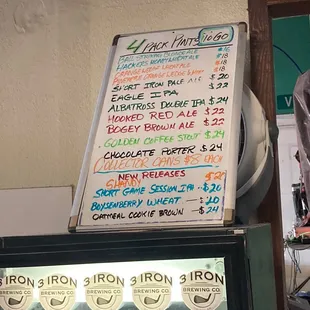 4 PACK PINTS TO GO
$18
$18
SHORT IRON PALE ALE $20
EAGLE IPA $22
ALBATROSS DOUBLE IPA $24
HOOKED RED ALE $22
BOGEY BROWN ALE $22
GOLDEN COFFEE STOUT $24
CHOCOLATE PORTER $24
COLLECTOR CANS $8 EACH
NEW RELEASES
SHANDY $20
SHORT GAME SESSION IPA - $20
BOYSENBERRY WHEAT - $20
OATMEAL COOKIE BROWN - $24
3 IRON BREWING CO.
3 IRON BREWING CO.
3 IRON BREWING CO.
3 IRON BREWING CO.
3 IRON BREWING CO.